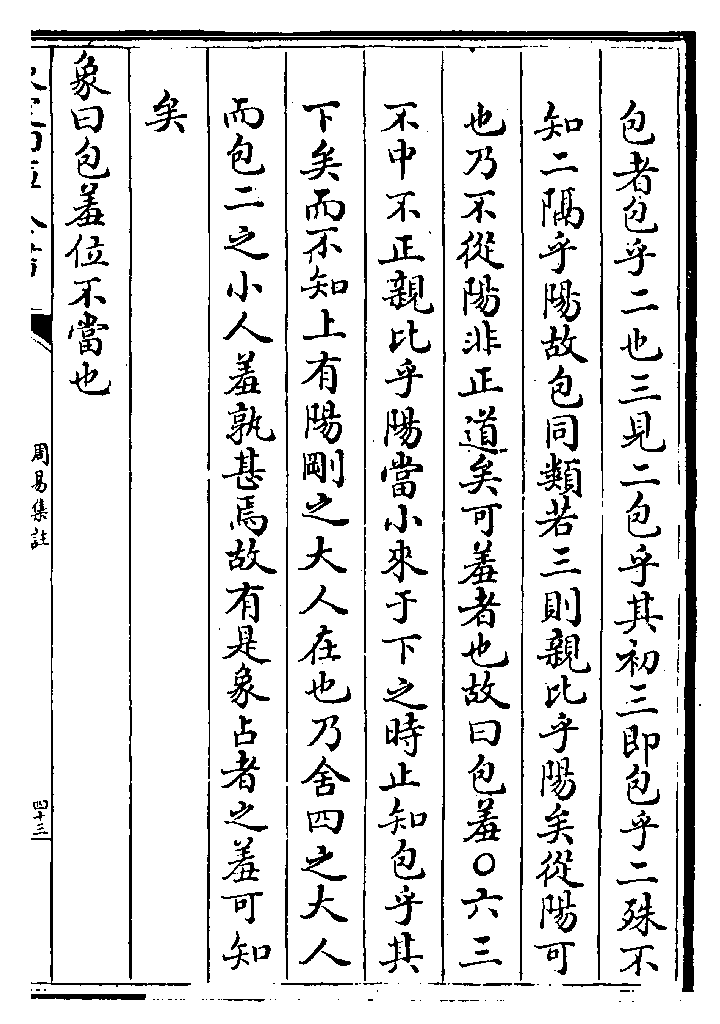 包者包乎二也三見二包乎其初三即包乎二殊不
知二隔乎陽故包同類若三則親比乎陽矣從陽可
也乃不從陽非正道矣可羞者也故曰包羞○六三
不中不正親比乎陽當小來于下之時止知包乎其
下矣而不知上有陽剛之大人在也乃舍四之大人
而包二之小人羞孰甚焉故有是象占者之羞可知
矣
象曰包羞位不當也
周易集註
四十三